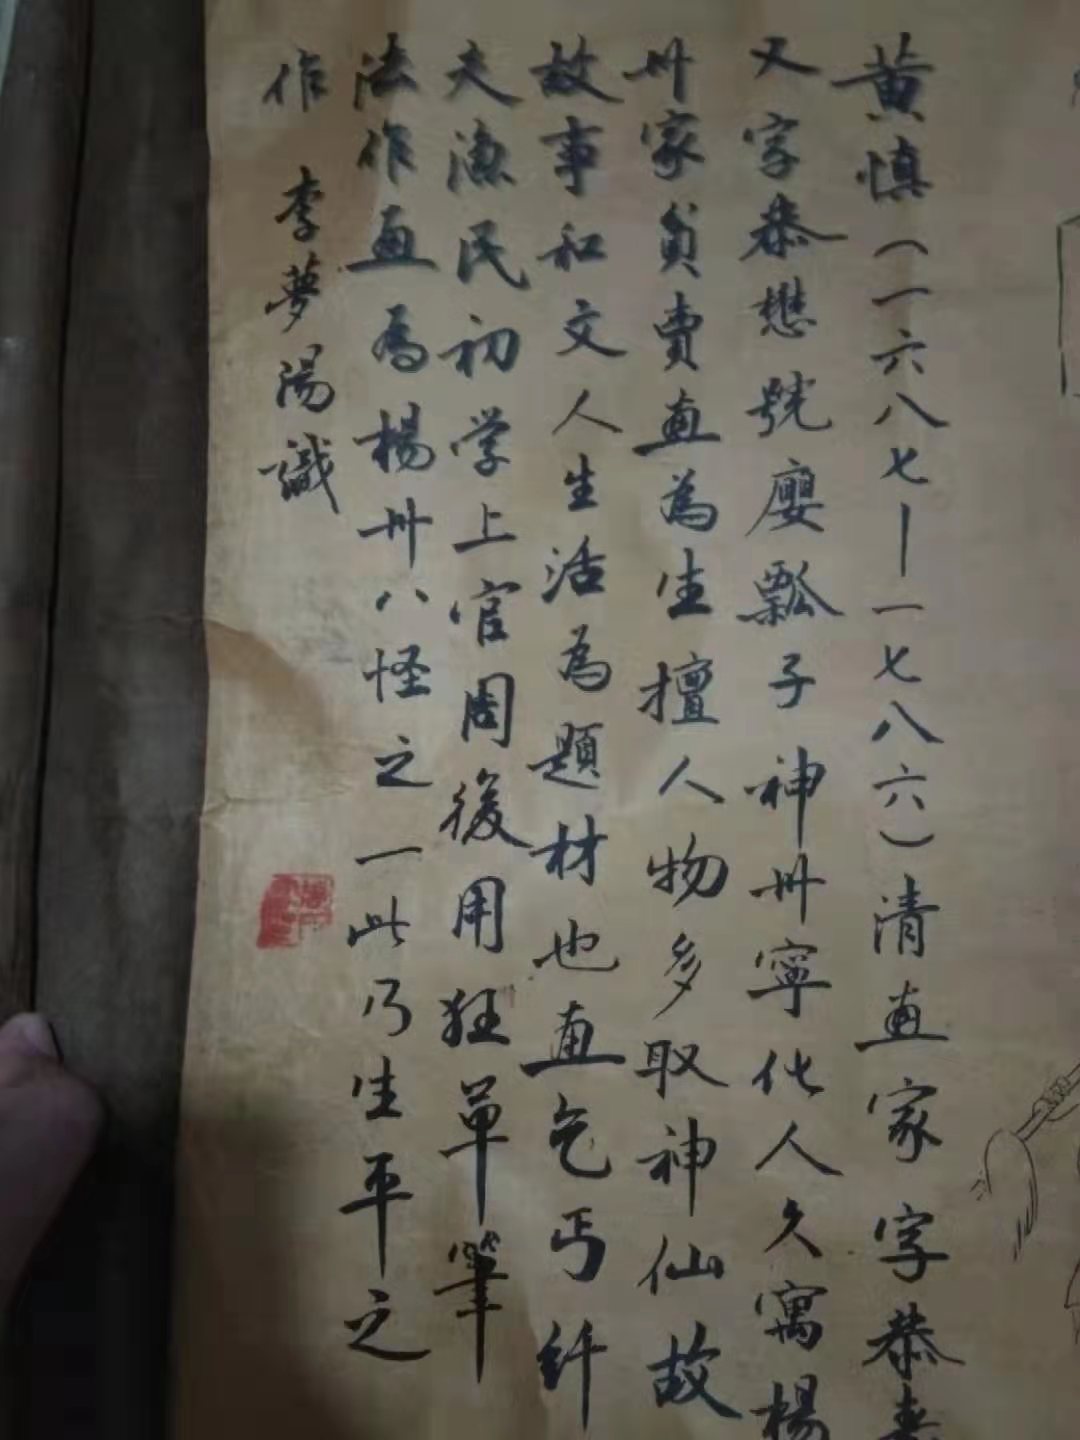 黄慎（一六八七—一七八六）清画家字恭寿
又字恭懋號廮瓢子神州寧化人久寓楊
州家貧賣画為生擅人物多取神仙故
故事和文人生活為題材也画乞丐纤
夫漁民初学上官周後用狂草筆
法作画為楊州八怪之一此乃生平之
作 李夢陽識